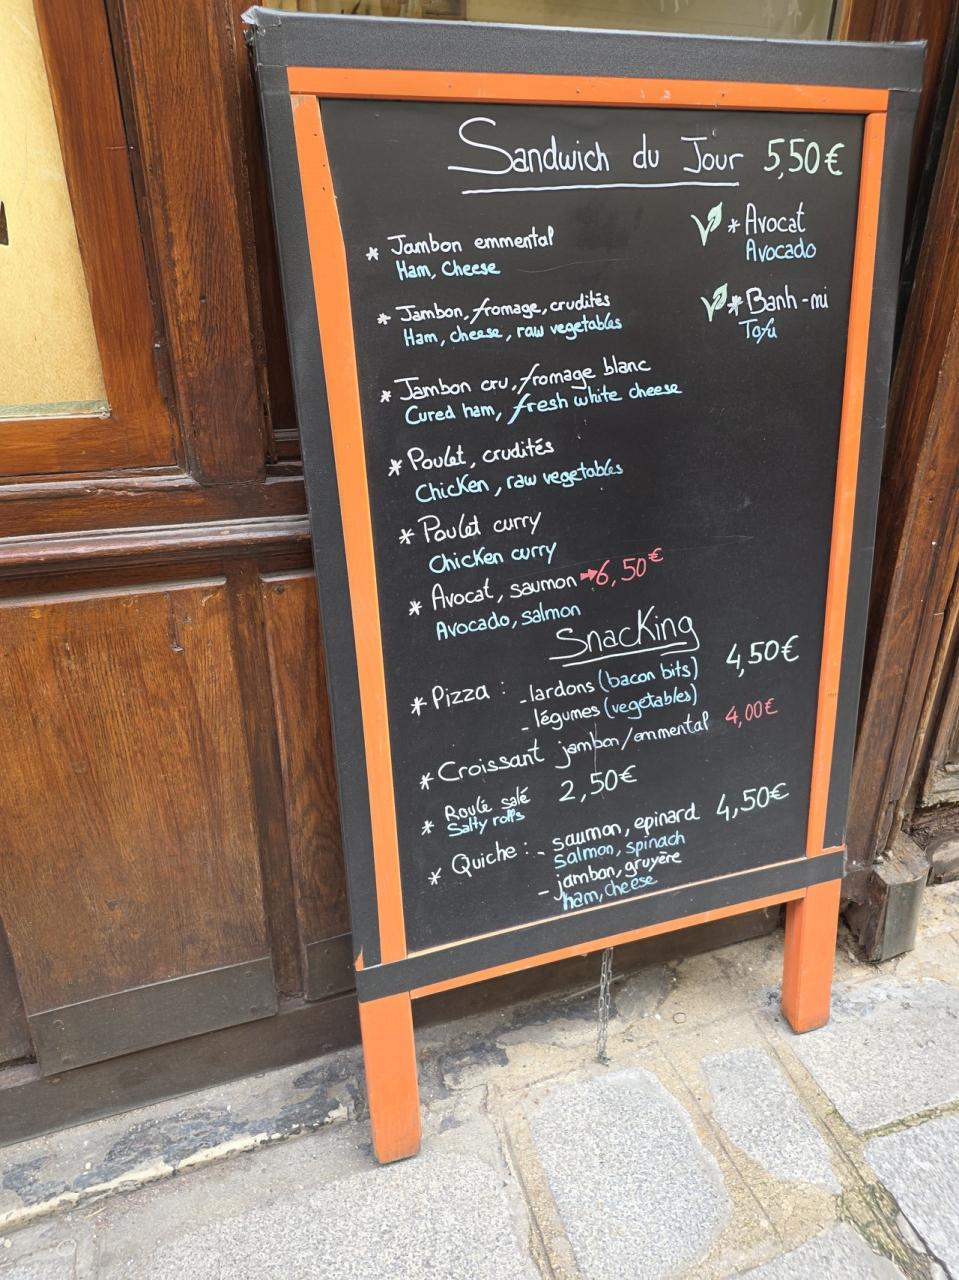 Sandwich du Jour 5,50€
* Jambon emmental
Ham, Cheese
* Avocat
Avocado
* Jambon, fromage, crudités
Ham, cheese, raw vegetables
* Banh-mi
Tofu
* Jambon cru, fromage blanc
Cured ham, fresh white cheese
* Poulet, crudités
Chicken, raw vegetables
* Poulet curry
Chicken curry
* Avocat, saumon → 6,50€
Avocado, salmon
Snacking
* Pizza : - lardons (bacon bits) 4,50€
- légumes (vegetables)
* Croissant jambon/emmental 4,00€
* Roulé salé 2,50€
Salty rolls
* Quiche : - saumon, epinard 4,50€
Salmon, spinach
- jambon, gruyère
ham, cheese